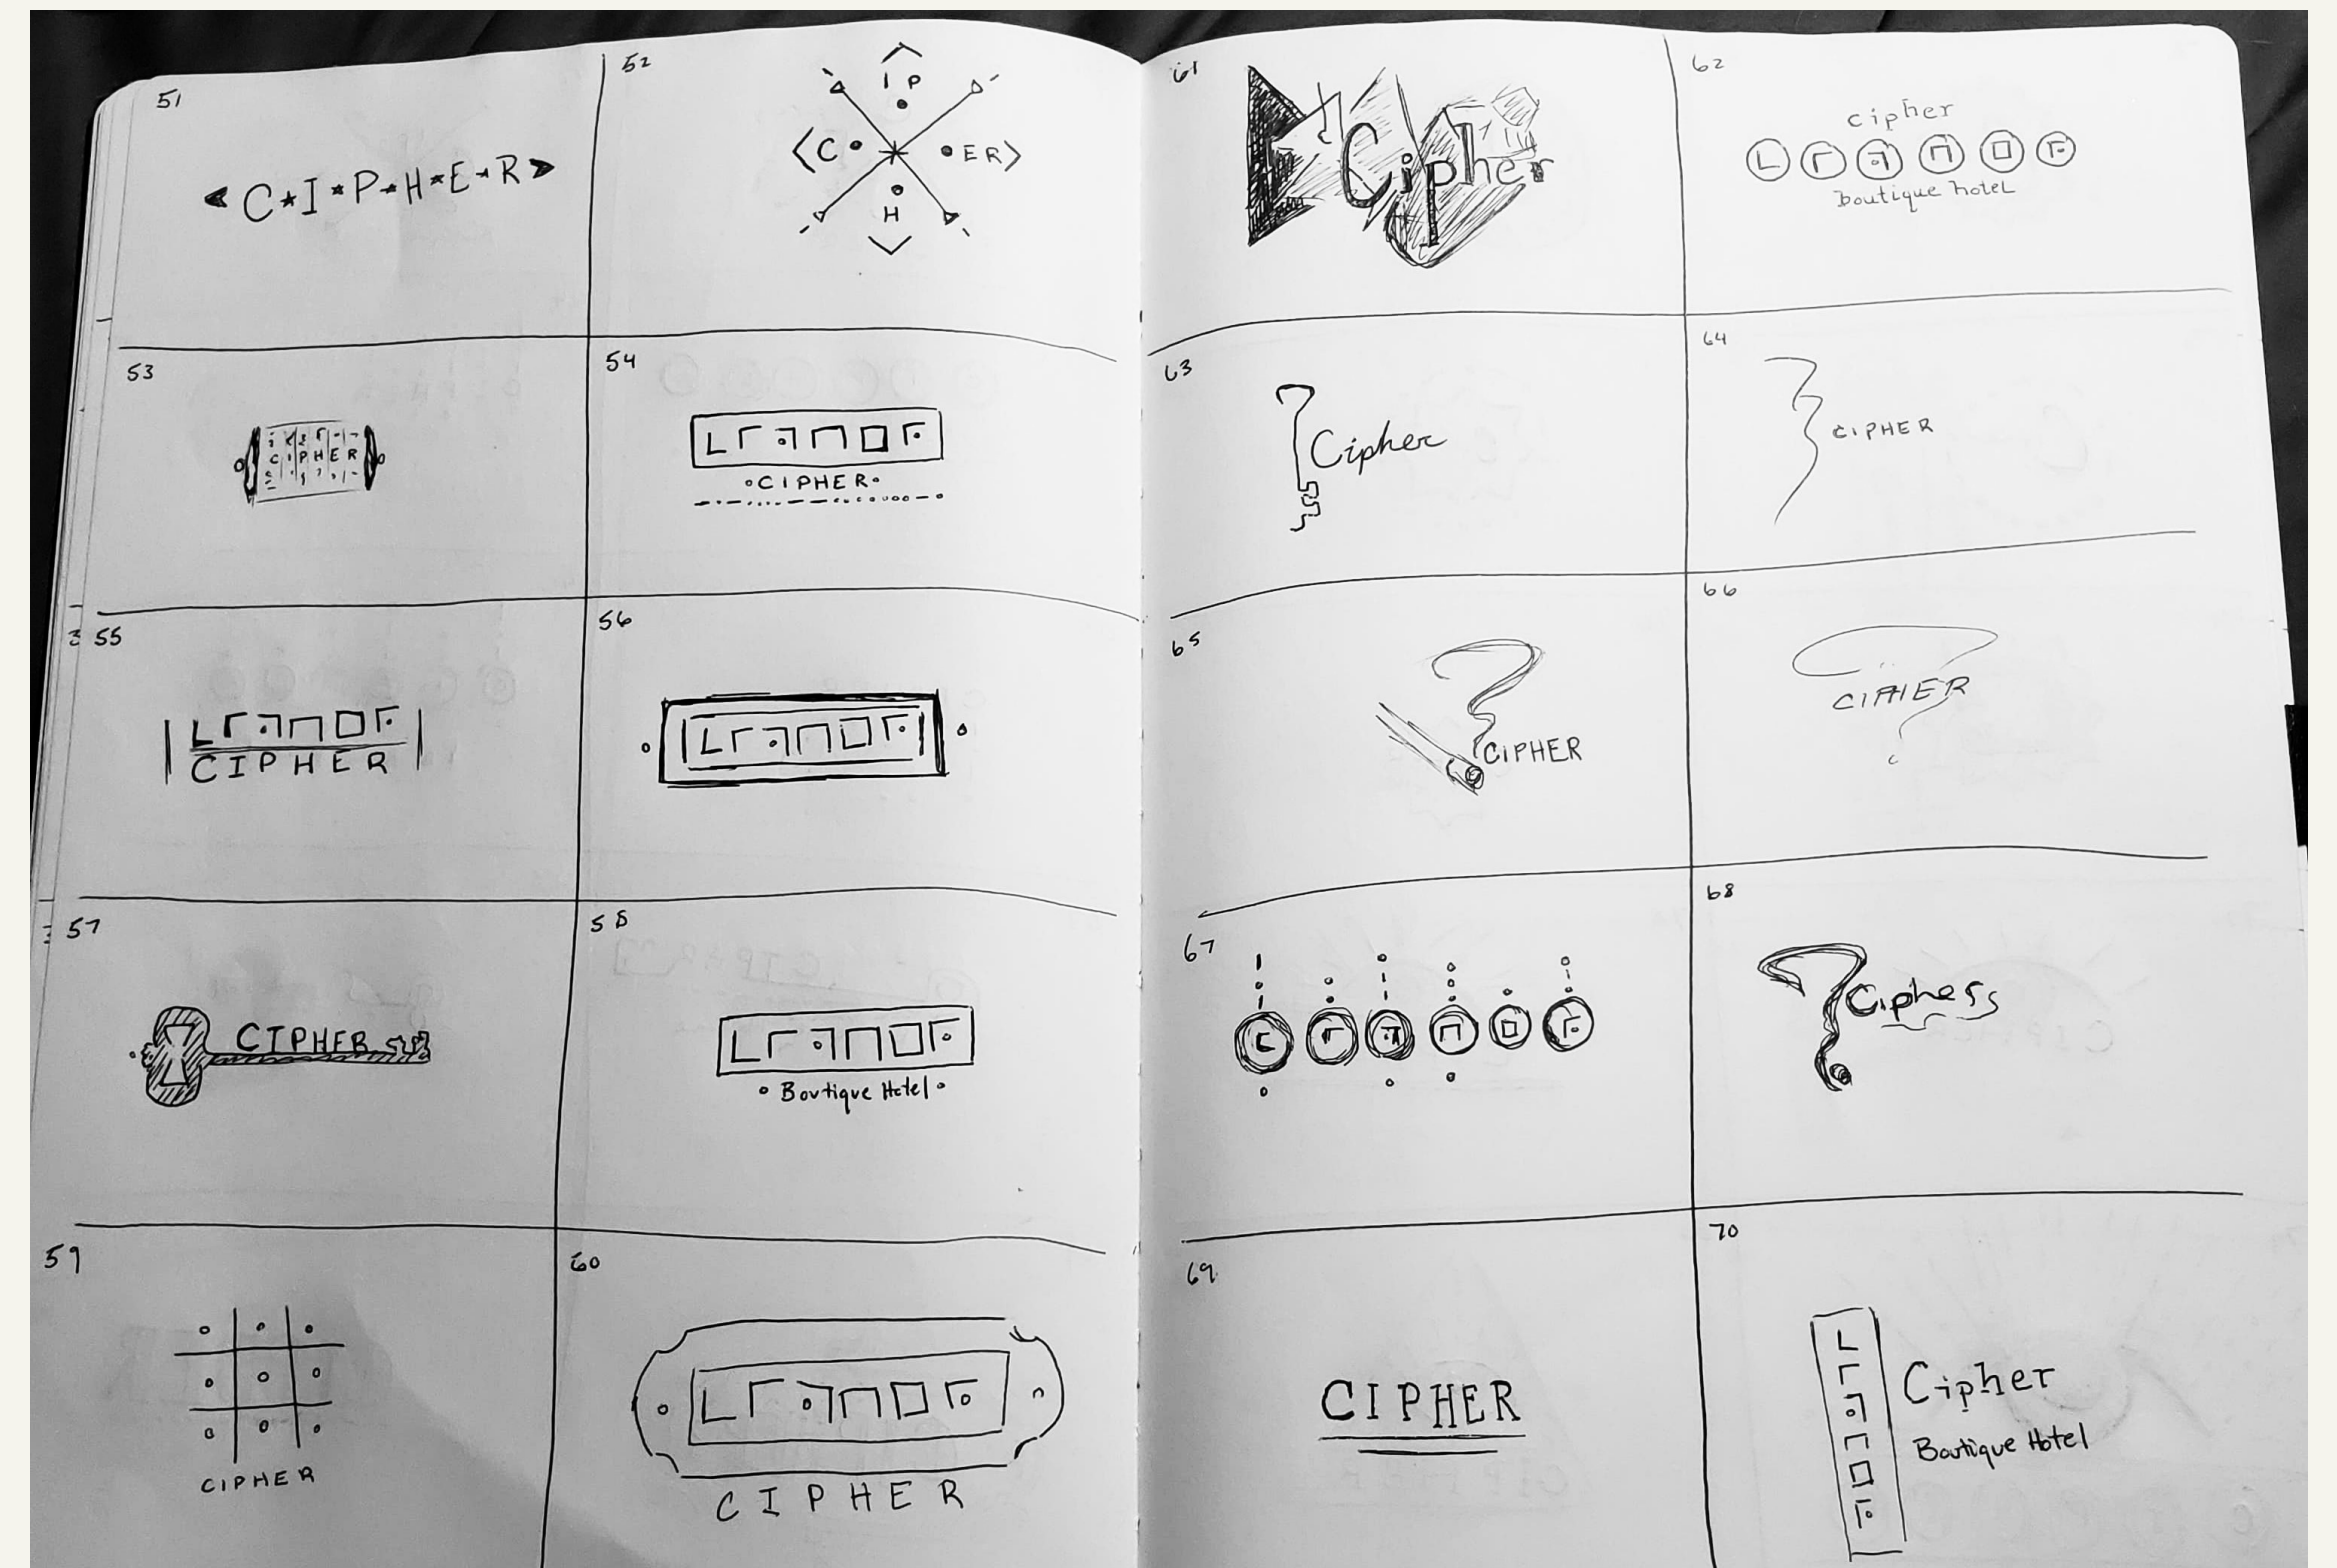 51
<C*I*P*H*E*R>
52
I P
<C
ER>
H
53
CIPHER
54
•CIPHER•
55
CIPHER
56
57
CIPHER
58
• Boutique Hotel •
59
CIPHER
60
CIPHER
61
Cipher
62
cipher
boutique hotel
63
Cipher
64
CIPHER
65
CIPHER
66
CIPHER
67
68
69
CIPHER
70
Cipher
Boutique Hotel